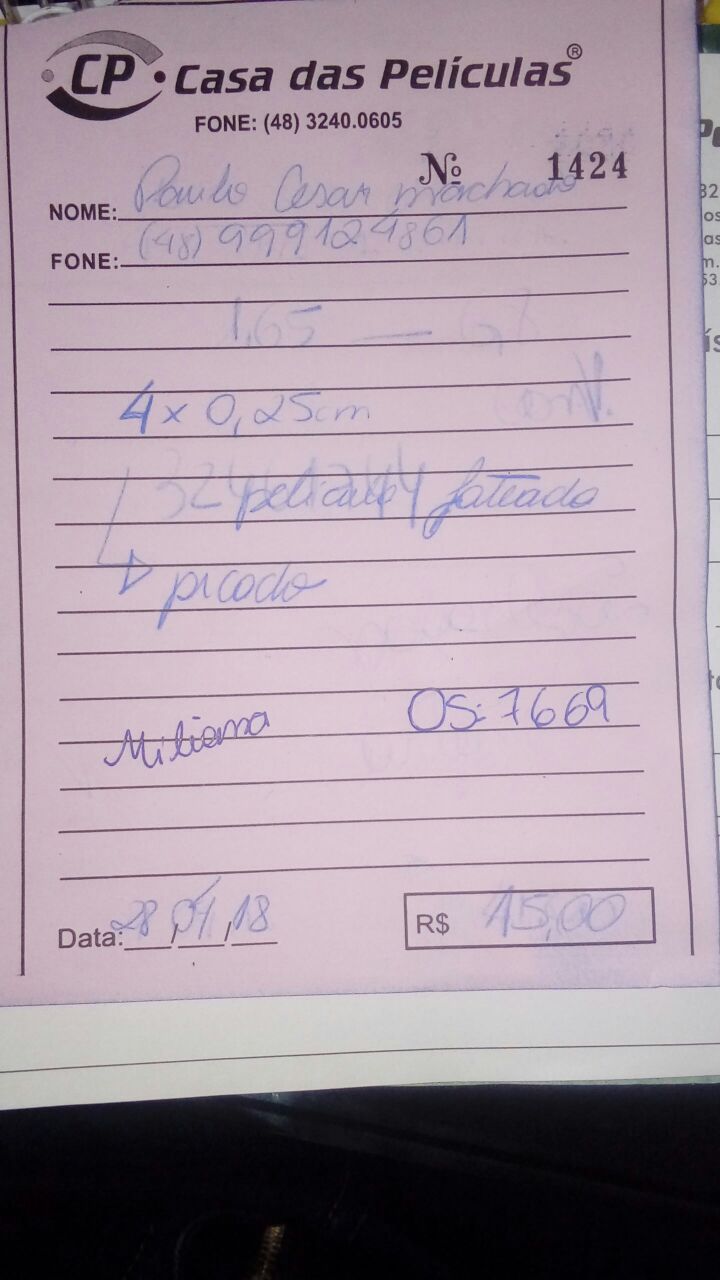 CP • Casa das Películas®
FONE: (48) 3240.0605
Nº 1424
NOME: Paulo Cesar machado
FONE: (48) 999124861
1,65 —
4 x 0,25cm
pelicula jateada
picado
OS: 7669
Data: 28/04/18
R$ 15,00